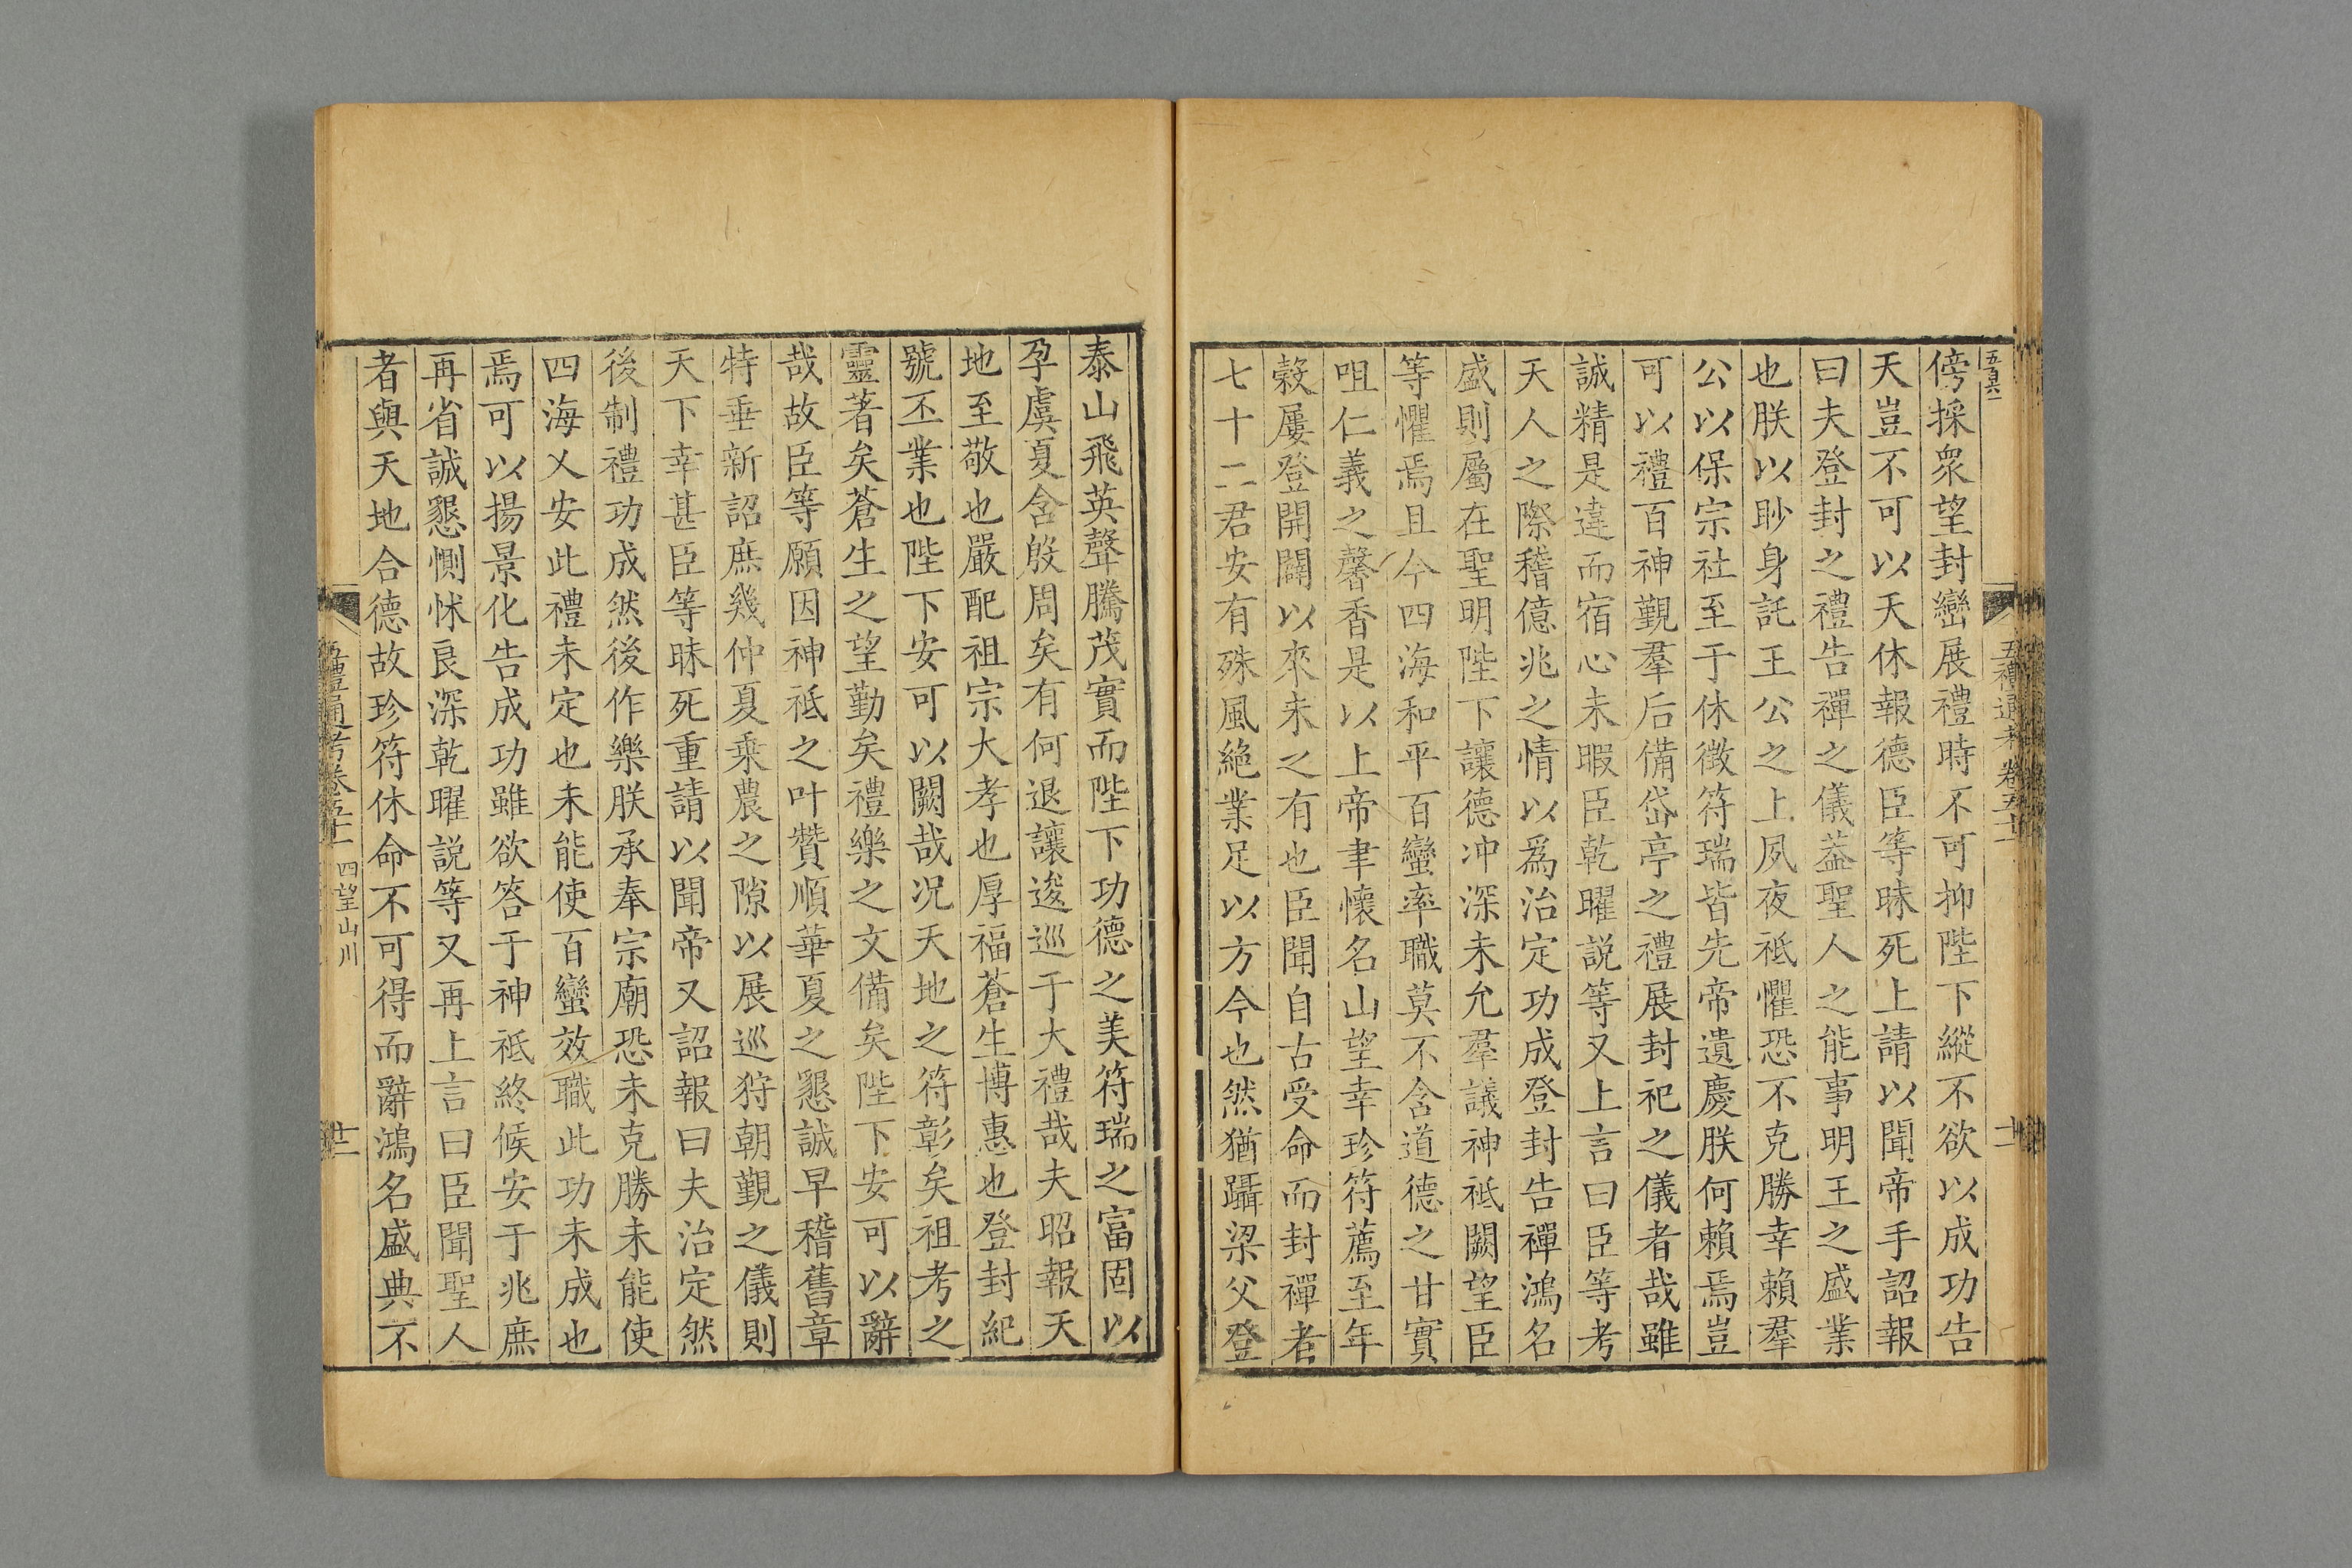 傍採衆望封巒展禮時不可抑陛下縱不欲以成功告
天豈不可以天休報德臣等昧死上請以聞帝手詔報
曰夫登封之禮告禪之儀葢聖人之能事明王之盛業
也朕以眇身託王公之上夙夜祗懼恐不克勝幸賴羣
公以保宗社至于休徵符瑞皆先帝遺慶朕何賴焉豈
可以禮百神覲羣后備岱亭之禮展封祀之儀者哉雖
誠精是違而宿心未暇臣乾曜説等又上言曰臣等考
天人之際稽億兆之情以爲治定功成登封告禪鴻名
盛則屬在聖明陛下讓德冲深未允羣議神祗闕望臣
等懼焉且今四海和平百蠻率職莫不含道德之甘實
咀仁義之馨香是以上帝聿懷名山望幸珍符薦至年
穀屢登開闢以來未之有也臣聞自古受命而封禪者
七十二君安有殊風絶業足以方今也然猶躡梁父登
泰山飛英聲騰茂實而陛下功德之美符瑞之富固以
孕虞夏含殷周矣有何退讓逡巡于大禮哉夫昭報天
地至敬也嚴配祖宗大孝也厚福蒼生博惠也登封紀
號丕業也陛下安可以闕哉况天地之符彰矣祖考之
靈著矣蒼生之望勤矣禮樂之文備矣陛下安可以辭
哉故臣等願因神祗之叶贊順華夏之懇誠早稽舊章
特垂新詔庶幾仲夏乘農之隙以展巡狩朝覲之儀則
天下幸甚臣等昧死重請以聞帝又詔報曰夫治定然
後制禮功成然後作樂朕承奉宗廟恐未克勝未能使
四海乂安此禮未定也未能使百蠻效職此功未成也
焉可以揚景化告成功雖欲答于神祗終候安于兆庶
再省誠懇惻怵良深乾曜説等又再上言曰臣聞聖人
者與天地合德故珍符休命不可得而辭鴻名盛典不
五禮通考卷五十 四望山川